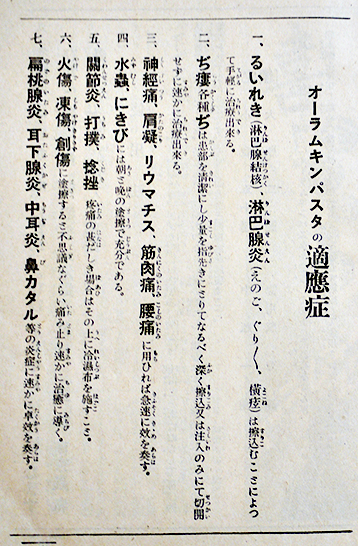 オーラムキンパスタの適應症
一、るいれき(淋巴腺結核)、淋巴腺炎(えのご、ぐり〳〵、橫痃)は擦込むことによつ
て手輕に治療出來る。
二、ぢ瘻各種ぢは患部を清潔にし少量を指先きにとりてなるべく深く擦込又は注入のみにて切開
せずに速かに治療出來る。
三、神經痛、肩凝、リウマチス、筋肉痛、腰痛に用ひれば急速に效を奏す。
四、水蟲、にきびには朝と晩の塗擦で充分である。
五、關節炎、打撲、捻挫 疼痛の甚だしき場合はその上に冷濕布を施すこと。
六、火傷、凍傷、創傷に塗擦すると不思議なぐらい痛み止り速かに治癒に導く。
七、扁桃腺炎、耳下腺炎、中耳炎、鼻カタル等の炎症に速かに卓效を奏す。